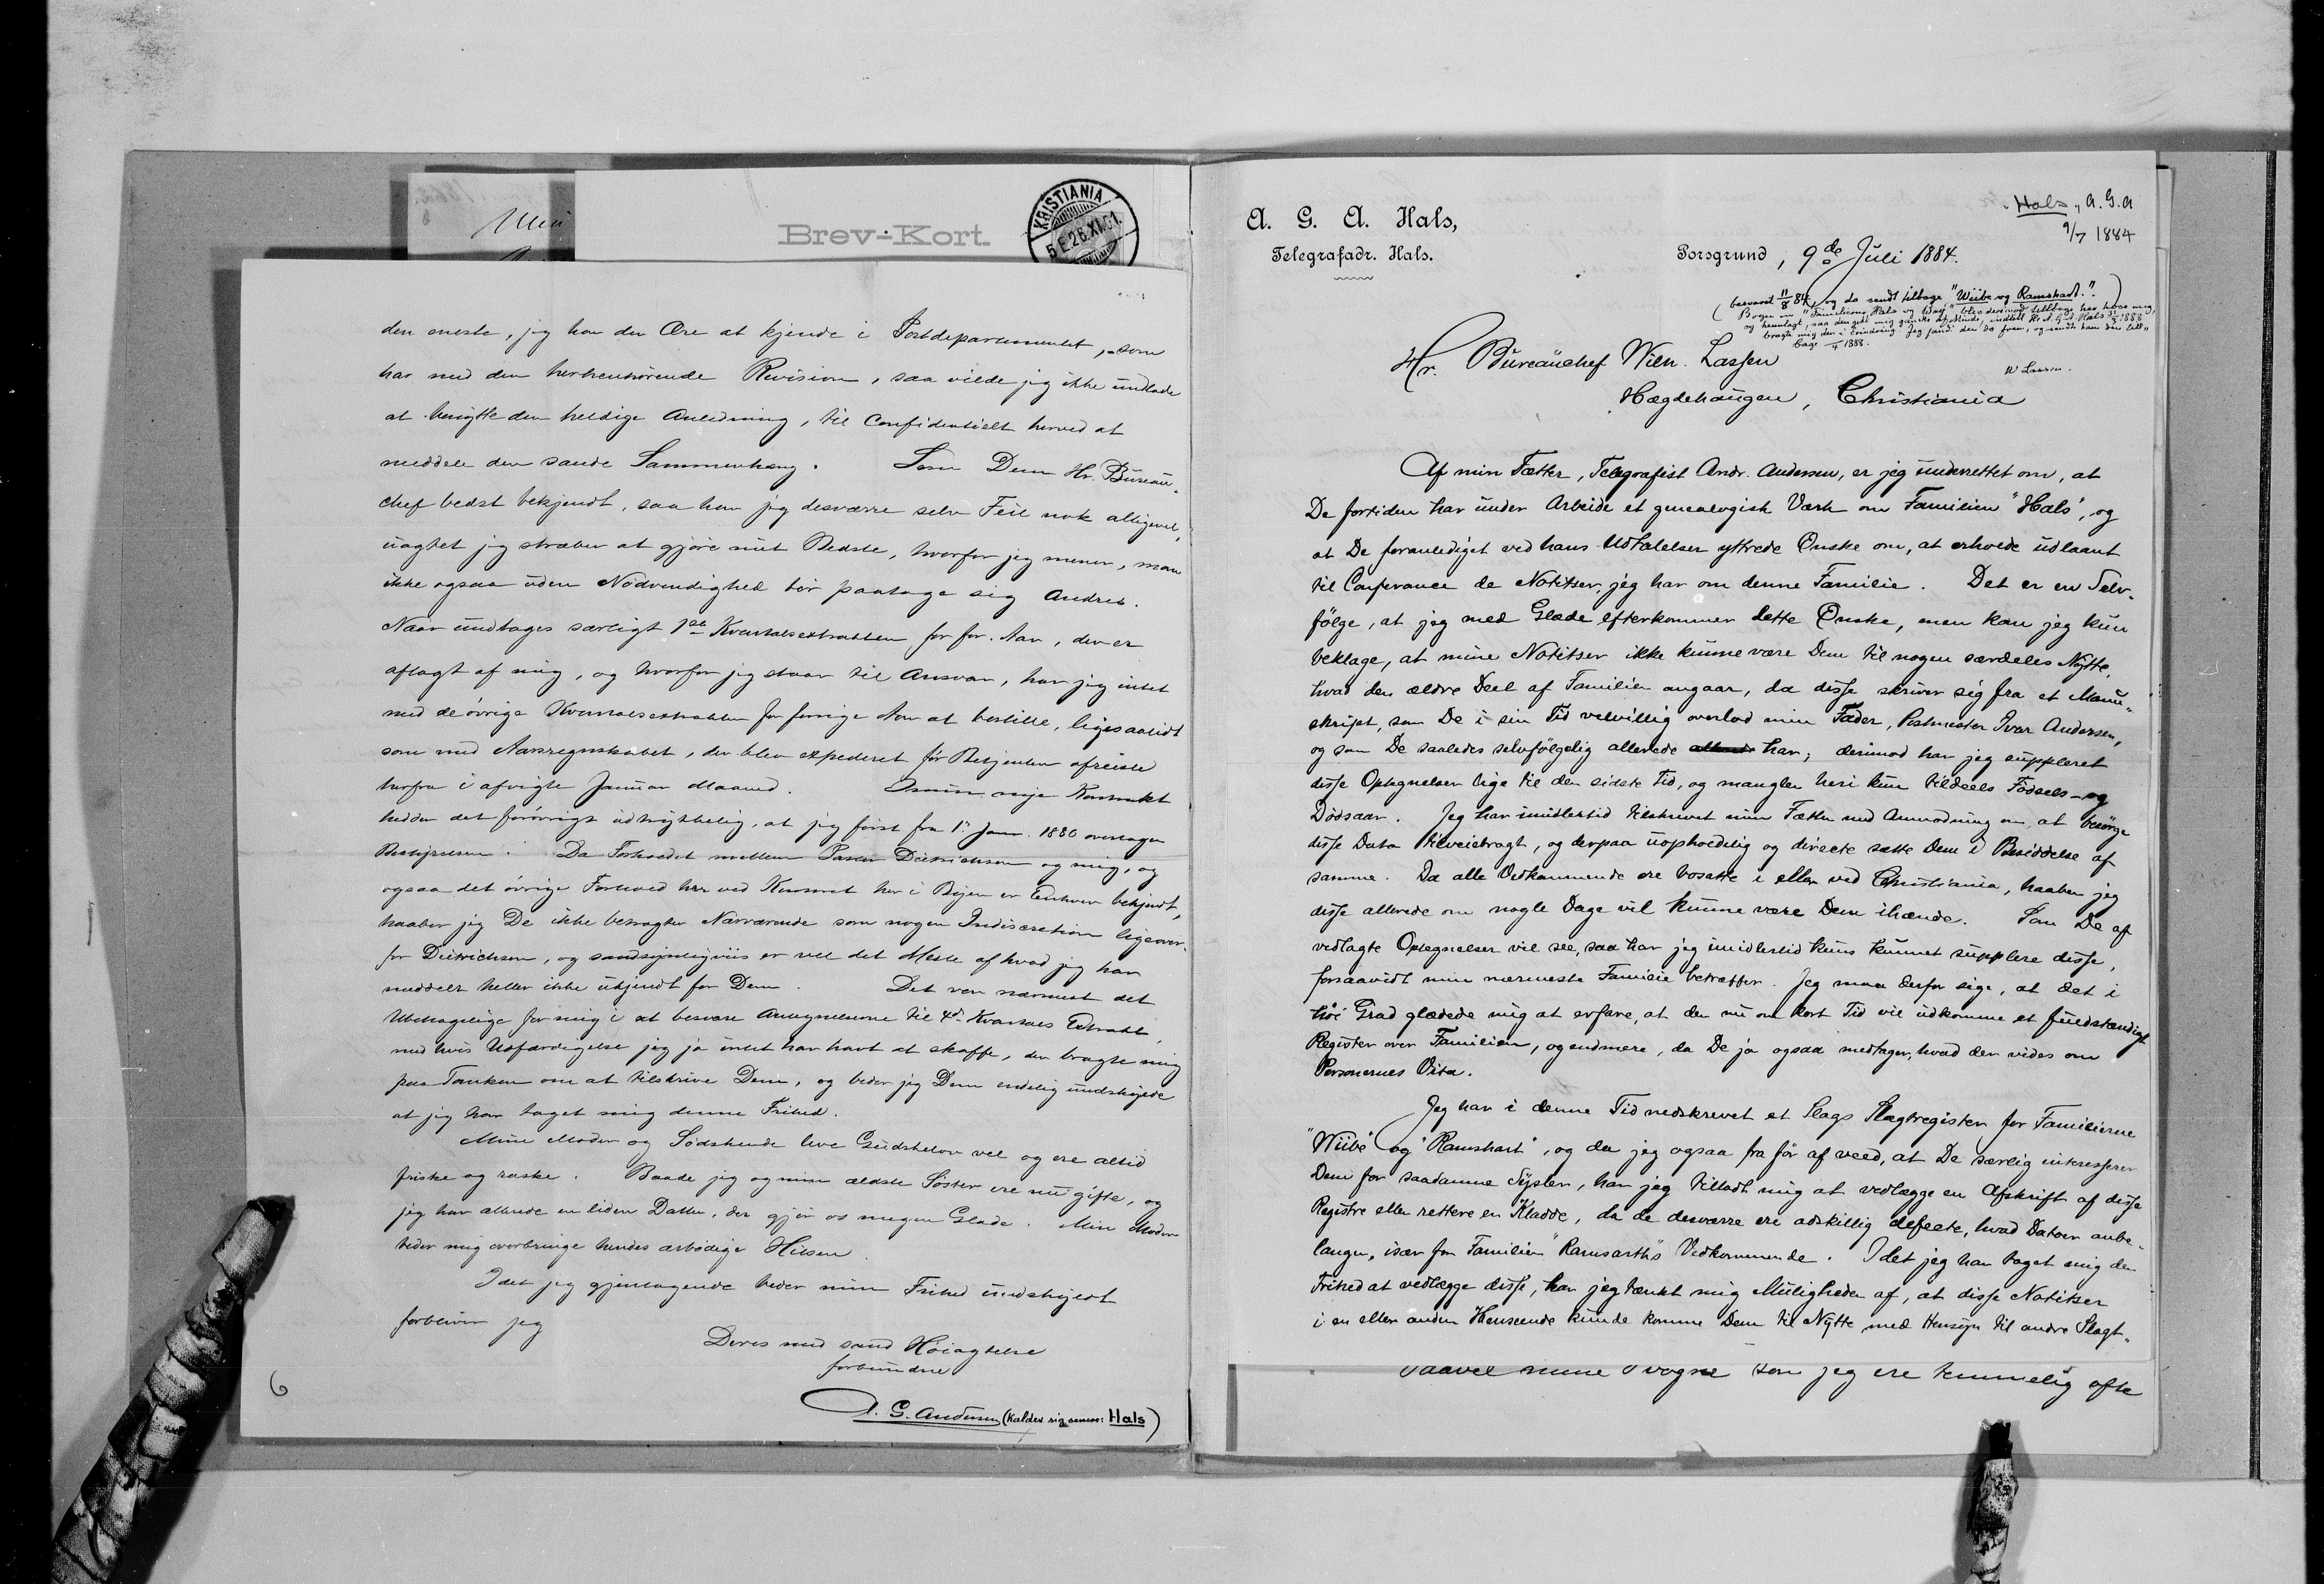 Brev-Kort.
KRISTIANIA
5 E 26.XI.91.
den eneste, jeg har den Ære at kjende i Postdepartementet, som
har med den herhenhørende Revision, saa vilde jeg ikke undlade
at benytte den heldige Anledning, til Confidentielt herved at
meddele den sande Sammenhæng. Som Dem Hr. Bureau-
chef bedst bekjendt, saa har jeg desværre selv Feil nok alligevel,
uagtet jeg stræber at gjøre mit Bedste, hvorfor jeg mener, man
ikke ogsaa uden Nødvendighed bør paatage sig Andres.
Naar undtages særligt 1ste Kvartalsextrakten for for. Aar, der er
aflagt af mig, og hvorfor jeg staar til Ansvar, har jeg intet
med de øvrige Kvartalsextrakter for forrige Aar at bestille, ligesaalidt
som med Aarsregnskabet, der blev expederet før Betjenten afreiste
herfra i afvigte Januar Maaned. nye Kontrakt
hedder det forøvrigt udtrykkelig, at jeg først fra 1. Janr. 1880 overtager
Bestyrelsen. Da Forholdet mellem Dietrichson og mig, og
ogsaa det øvrige Forhold her ved Kontoret her i Byen er Enhver bekjendt,
haaber jeg De ikke betragter Nærværende som nogen Indiscretion ligeover-
for Dietrichson, og sandsynligviis er vel det Meste af hvad jeg har
meddelt heller ikke ukjendt for Dem. Det var nærmest det
Ubehagelige for mig i at besvare Antegnelserne til 4de Kvartals Extrakt,
med hvis Udfærdigelse jeg jo intet har havt at skaffe, der bragte mig
paa Tanken om at tilskrive Dem, og beder jeg Dem endelig undskylde
at jeg har taget mig denne Frihed.
Min Moder og Sødskende leve Gudskelov vel og ere altid
friske og raske. Baade jeg og min ældste Søster ere nu gifte, og
jeg har allerede en liden Datter, der gjør os megen Glæde. Min Moder
beder mig overbringe hendes ærbødige Hilsen.
Idet jeg gjentagende beder min Frihed undskyldt
forbliver jeg
Deres med sand Høiagtelse
forbundne
A. G. Andersen (kalder sig senere: Hals)
6
Hals, A. G. A
9/7 1884
A. G. A. Hals,
Telegrafadr. Hals.
Porsgrund, 9de Juli 1884.
(besvaret 11/8 84, og da sendt tilbage "Wiibe og Ramshart".)
Bogen om "Familierne Hals og Way" blev derimod tilbage her hos mig,
og henlagt, saa den gik mig ganske af Minde, indtil Hr. A. G. A. Hals 1888
bragte mig den i Erindring. Jeg fandt den da frem, og sendte ham den till-
bage /4 1888.
W Lassen.
Hr. Bureauchef Wilh. Lassen
Hægdehaugen, Christiania
Af min Fætter, Telegrafist Andr. Andersen, er jeg underrettet om, at
De fortiden har under Arbeide et genealogisk Værk om Familien "Hals", og
at De foranlediget ved hans Udtalelser yttrede Ønske om, at erholde udlaant
til Conferance de Notitser, jeg har om denne Familie. Det er en Selv-
følge, at jeg med Glæde efterkommer dette Ønske, men kan jeg kun
beklage, at mine Notitser ikke kunne være Dem til nogen særdeles Nytte,
hvad den ældre Deel af Familien angaar, da disse skriver sig fra et Manu-
skript, som De i sin Tid velvillig overlod min Fader, Postmester Ivar Andersen,
og som De saaledes selvfølgelig allerede har; derimod har jeg suppleret
disse Optegnelser lige til den sidste Tid, og mangler heri kun tildeels Fødsels- og
Dødsaar. Jeg har imidlertid tilskrevet min Fætter med Anmodning om, at besørge
disse Data tilveiebragt, og derpaa uopholdelig og directe sætte Dem i Besiddelse af
samme. Da alle Vedkommende ere bosatte i eller ved Christiania, haaber jeg
disse allerede om nogle Dage vil kunne være Dem ihænde. Som De af
vedlagte Optegnelser vil see, saa har jeg imidlertid kuns kunnet supplere disse,
forsaavidt min nærmeste Familie betræffer. Jeg maa derfor sige, at det i
høi Grad glædede mig at erfare, at der nu om kort Tid vil udkomme et fuldstændigt
Register over Familien, og endmere, da De jo ogsaa medtager, hvad der vides om
Personernes Vita.
Jeg har i denne Tid nedskrevet et Slags Slægtregister for Familierne
"Wiibe" og "Ramshart", og da jeg ogsaa fra før af veed, at De særlig interesserer
Dem for saadanne Sysler, har jeg tilladt mig at vedlægge en Afskrift af disse
Registre eller rettere en Kladde, da de desværre ere adskillig defecte, hvad Datoer anbe-
langer, især for Familien "Ramsarth's" Vedkommende. Idet jeg har taget mig den
Frihed at vedlægge disse, har jeg tænkt mig Muligheden af, at disse Notitser
i en eller anden Henseende kunde komme Dem til Nytte med Hensyn til andre Slægt-
Saavel mine som jeg ere temmelig ofte